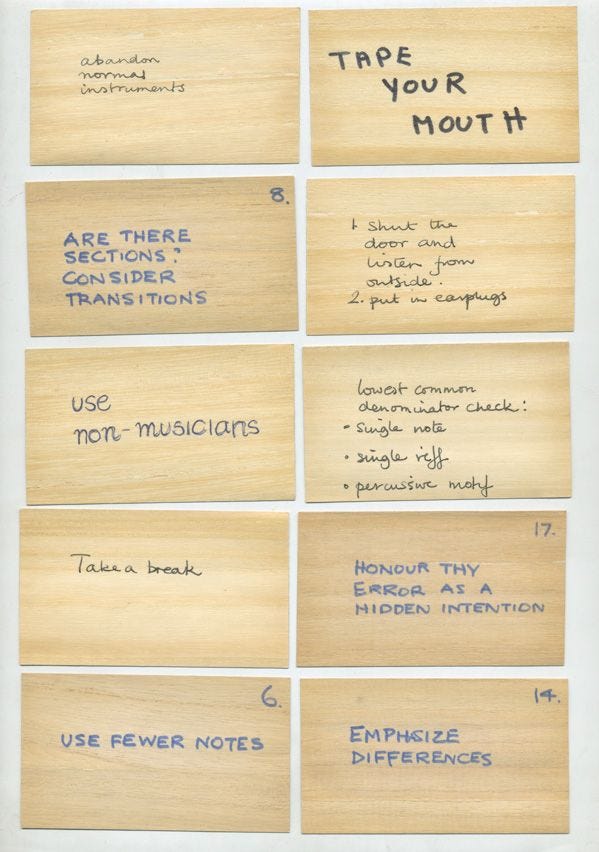 abandon
normal
instruments
TAPE
YOUR
MOUTH
8.
ARE THERE
SECTIONS?
CONSIDER
TRANSITIONS
1. Shut the
door and
listen from
outside.
2. put in earplugs
USE
non-musicians
lowest common
denominator check:
• single note
• single riff
• percussive motif
Take a break
17.
HONOUR THY
ERROR AS A
HIDDEN INTENTION
6.
USE FEWER NOTES
14.
EMPHASIZE
DIFFERENCES